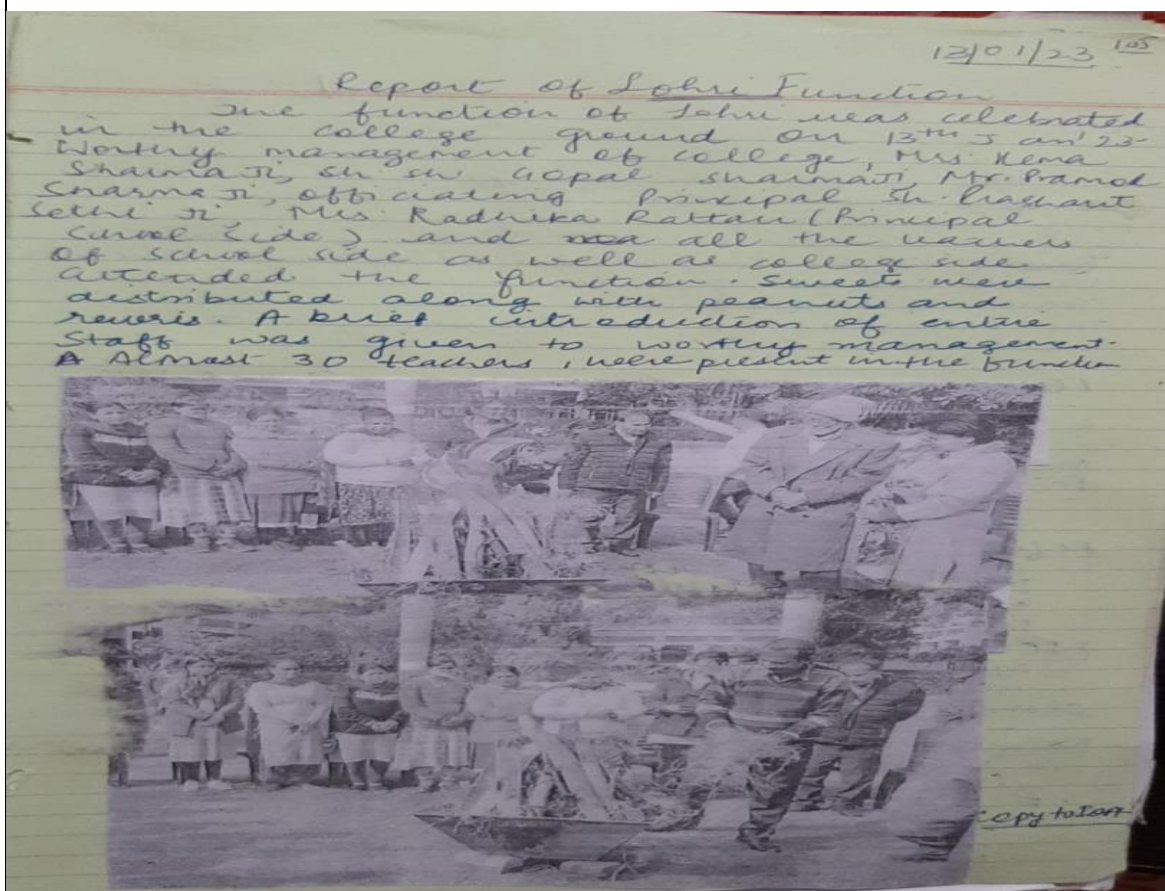 13/01/23 105
Report of Lohri Function
The function of Lohri was celebrated
in the college ground on 13th Jan'23.
Worthy management of college, Mrs. Hema
Sharma Ji, Sh Sh Gopal Sharma Ji, Mr. Pramod
Sharma Ji, officiating Principal Sh. Prashant
Sethi Ji, Mrs. Radhika Rattan (Principal
School Side) and all the teachers
of school side as well as college side
attended the function. Sweets were
distributed along with peanuts and
reveris. A brief introduction of entire
Staff was given to worthy management.
Almost 30 teachers, were present in the function
Copy to